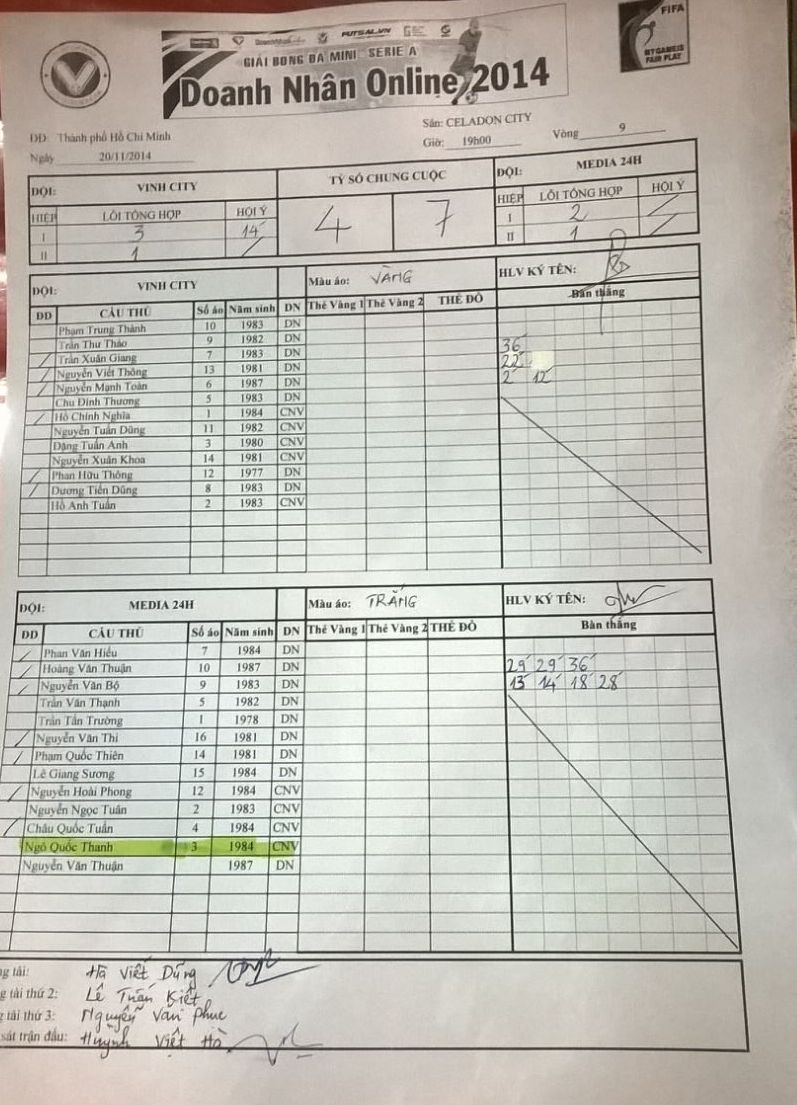 FUTSAL.VN
FIFA
MY GAME IS
FAIR PLAY
GIẢI BÓNG ĐÁ MINI - SERIE A
Doanh Nhân Online 2014
DD: Thành phố Hồ Chí Minh
Sân: CELADON CITY
Ngày 20/11/2014
Giờ: 19h00
Vòng 9
ĐỘI: VINH CITY
TỶ SỐ CHUNG CUỘC
ĐỘI: MEDIA 24H
HIỆP LỖI TỔNG HỢP HỘI Ý
4 7
HIỆP LỖI TỔNG HỢP HỘI Ý
I 3 14'
I 2
II 1
II 1
ĐỘI: VINH CITY Màu áo: VÀNG HLV KÝ TÊN:
DD CẦU THỦ Số áo Năm sinh DN Thẻ Vàng 1 Thẻ Vàng 2 THẺ ĐỎ Bàn thắng
Phạm Trung Thành 10 1983 DN
Trần Thư Thảo 9 1982 DN 36'
Trần Xuân Giang 7 1983 DN 22'
Nguyễn Viết Thông 13 1981 DN 2' 12'
Nguyễn Mạnh Toàn 6 1987 DN
Chu Đình Thương 5 1983 DN
Hồ Chính Nghĩa 1 1984 CNV
Nguyễn Tuấn Dũng 11 1982 CNV
Đặng Tuấn Anh 3 1980 CNV
Nguyễn Xuân Khoa 14 1981 CNV
Phan Hữu Thông 12 1977 DN
Dương Tiến Dũng 8 1983 DN
Hồ Anh Tuấn 2 1983 CNV
ĐỘI: MEDIA 24H Màu áo: TRẮNG HLV KÝ TÊN:
DD CẦU THỦ Số áo Năm sinh DN Thẻ Vàng 1 Thẻ Vàng 2 THẺ ĐỎ Bàn thắng
Phan Văn Hiếu 7 1984 DN
Hoàng Văn Thuận 10 1987 DN 29' 29' 36'
Nguyễn Văn Bộ 9 1983 DN 13' 14' 18' 28'
Trần Văn Thạnh 5 1982 DN
Trần Tấn Trường 1 1978 DN
Nguyễn Văn Thi 16 1981 DN
Phạm Quốc Thiên 14 1981 DN
Lê Giang Sương 15 1984 DN
Nguyễn Hoài Phong 12 1984 CNV
Nguyễn Ngọc Tuấn 2 1983 CNV
Châu Quốc Tuấn 4 1984 CNV
Ngô Quốc Thanh 3 1984 CNV
Nguyễn Văn Thuận 1987 DN
g tài: Hà Viết Dũng
g tài thứ 2: Lê Trấn Kiết
g tài thứ 3: Nguyễn Văn Phúc
sát trận đấu: Huỳnh Việt Hò